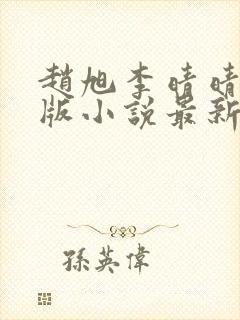 趙旭李晴晴
版小說最新
孫英偉